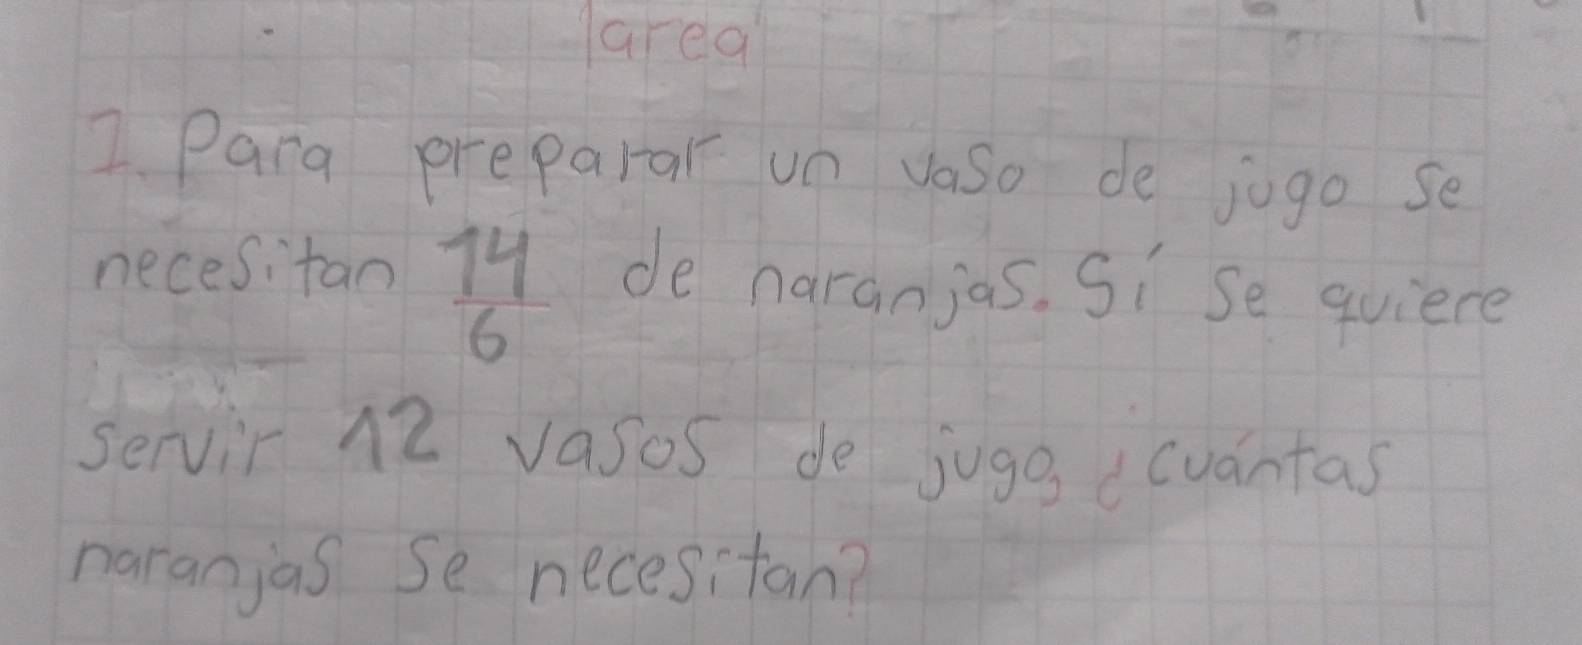 Tarea
1. Para preparar un vaso de jugo se
necesitan 14/6 de naranjas. Sí se quiere
servir 12 vasos de jugo, ¿cuántas
naranjas se necesitan?